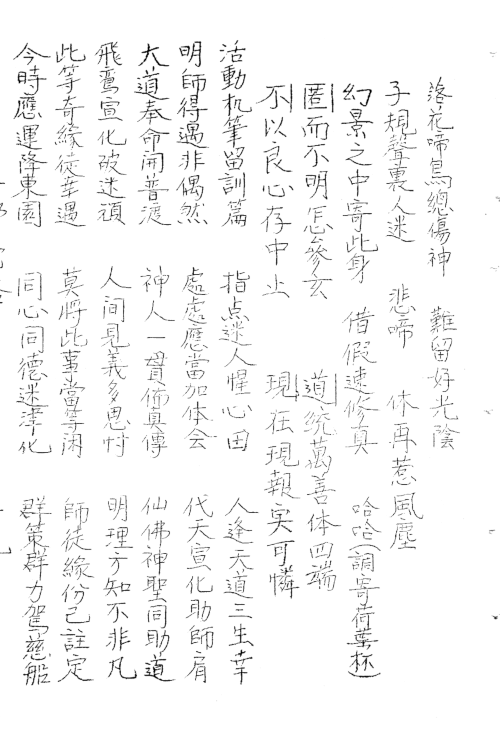 落花啼鳥總傷神　難留好光陰
子規聲裏人迷　悲啼　休再惹風塵
幻景之中寄此身　借假速修真　哈哈(調寄荷葉杯)
匿而不明怎參玄　道統萬善体四端
不以良心存中止　現在現報实可憐
活動机筆留訓篇　指点迷人惺心田　人逢天道三生幸
明師得遇非偶然　處處應當加体会　代天宣化助師肩
大道奉命開普渡　神人一貫佈真傳　仙佛神聖同助道
飛鸞宣化破迷頑　人间見義多思忖　明理方知不非凡
此等奇緣徒幸遇　莫將此事當等闲　師徒緣份已註定
今時應運降東園　同心同德迷津化　群策群力駕慈船